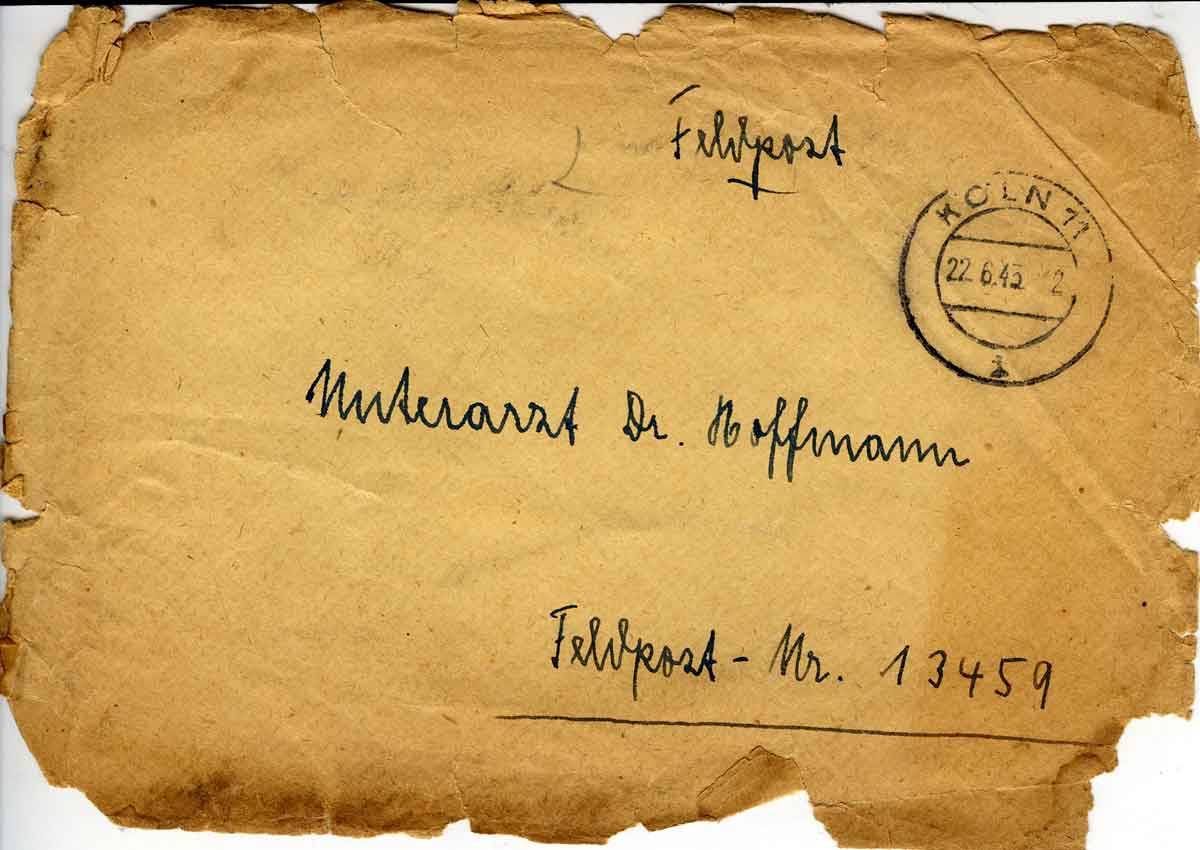 Feldpost
KÖLN 71
22.6.43
2
Unterarzt Dr. Hoffmann
Feldpost-Nr. 13459